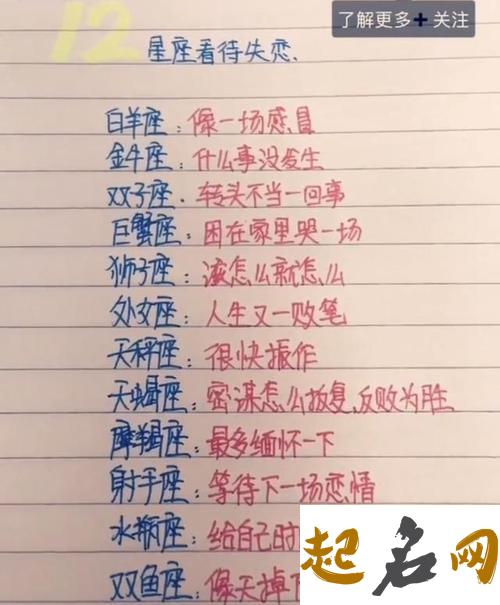 了解更多+关注
12
星座看待失恋.
白羊座：像一场感冒
金牛座：什么事没发生
双子座.转头不当一回事
巨蟹座：困在家里哭一场
狮子座：该怎么就怎么
处女座：人生又一败笔
天秤座：很快振作
天蝎座：密谋怎么报复、反败为胜
摩羯座：最多缅怀一下
射手座：等待下一场恋情
水瓶座：给自己时
双鱼座：像天掉下
起名网